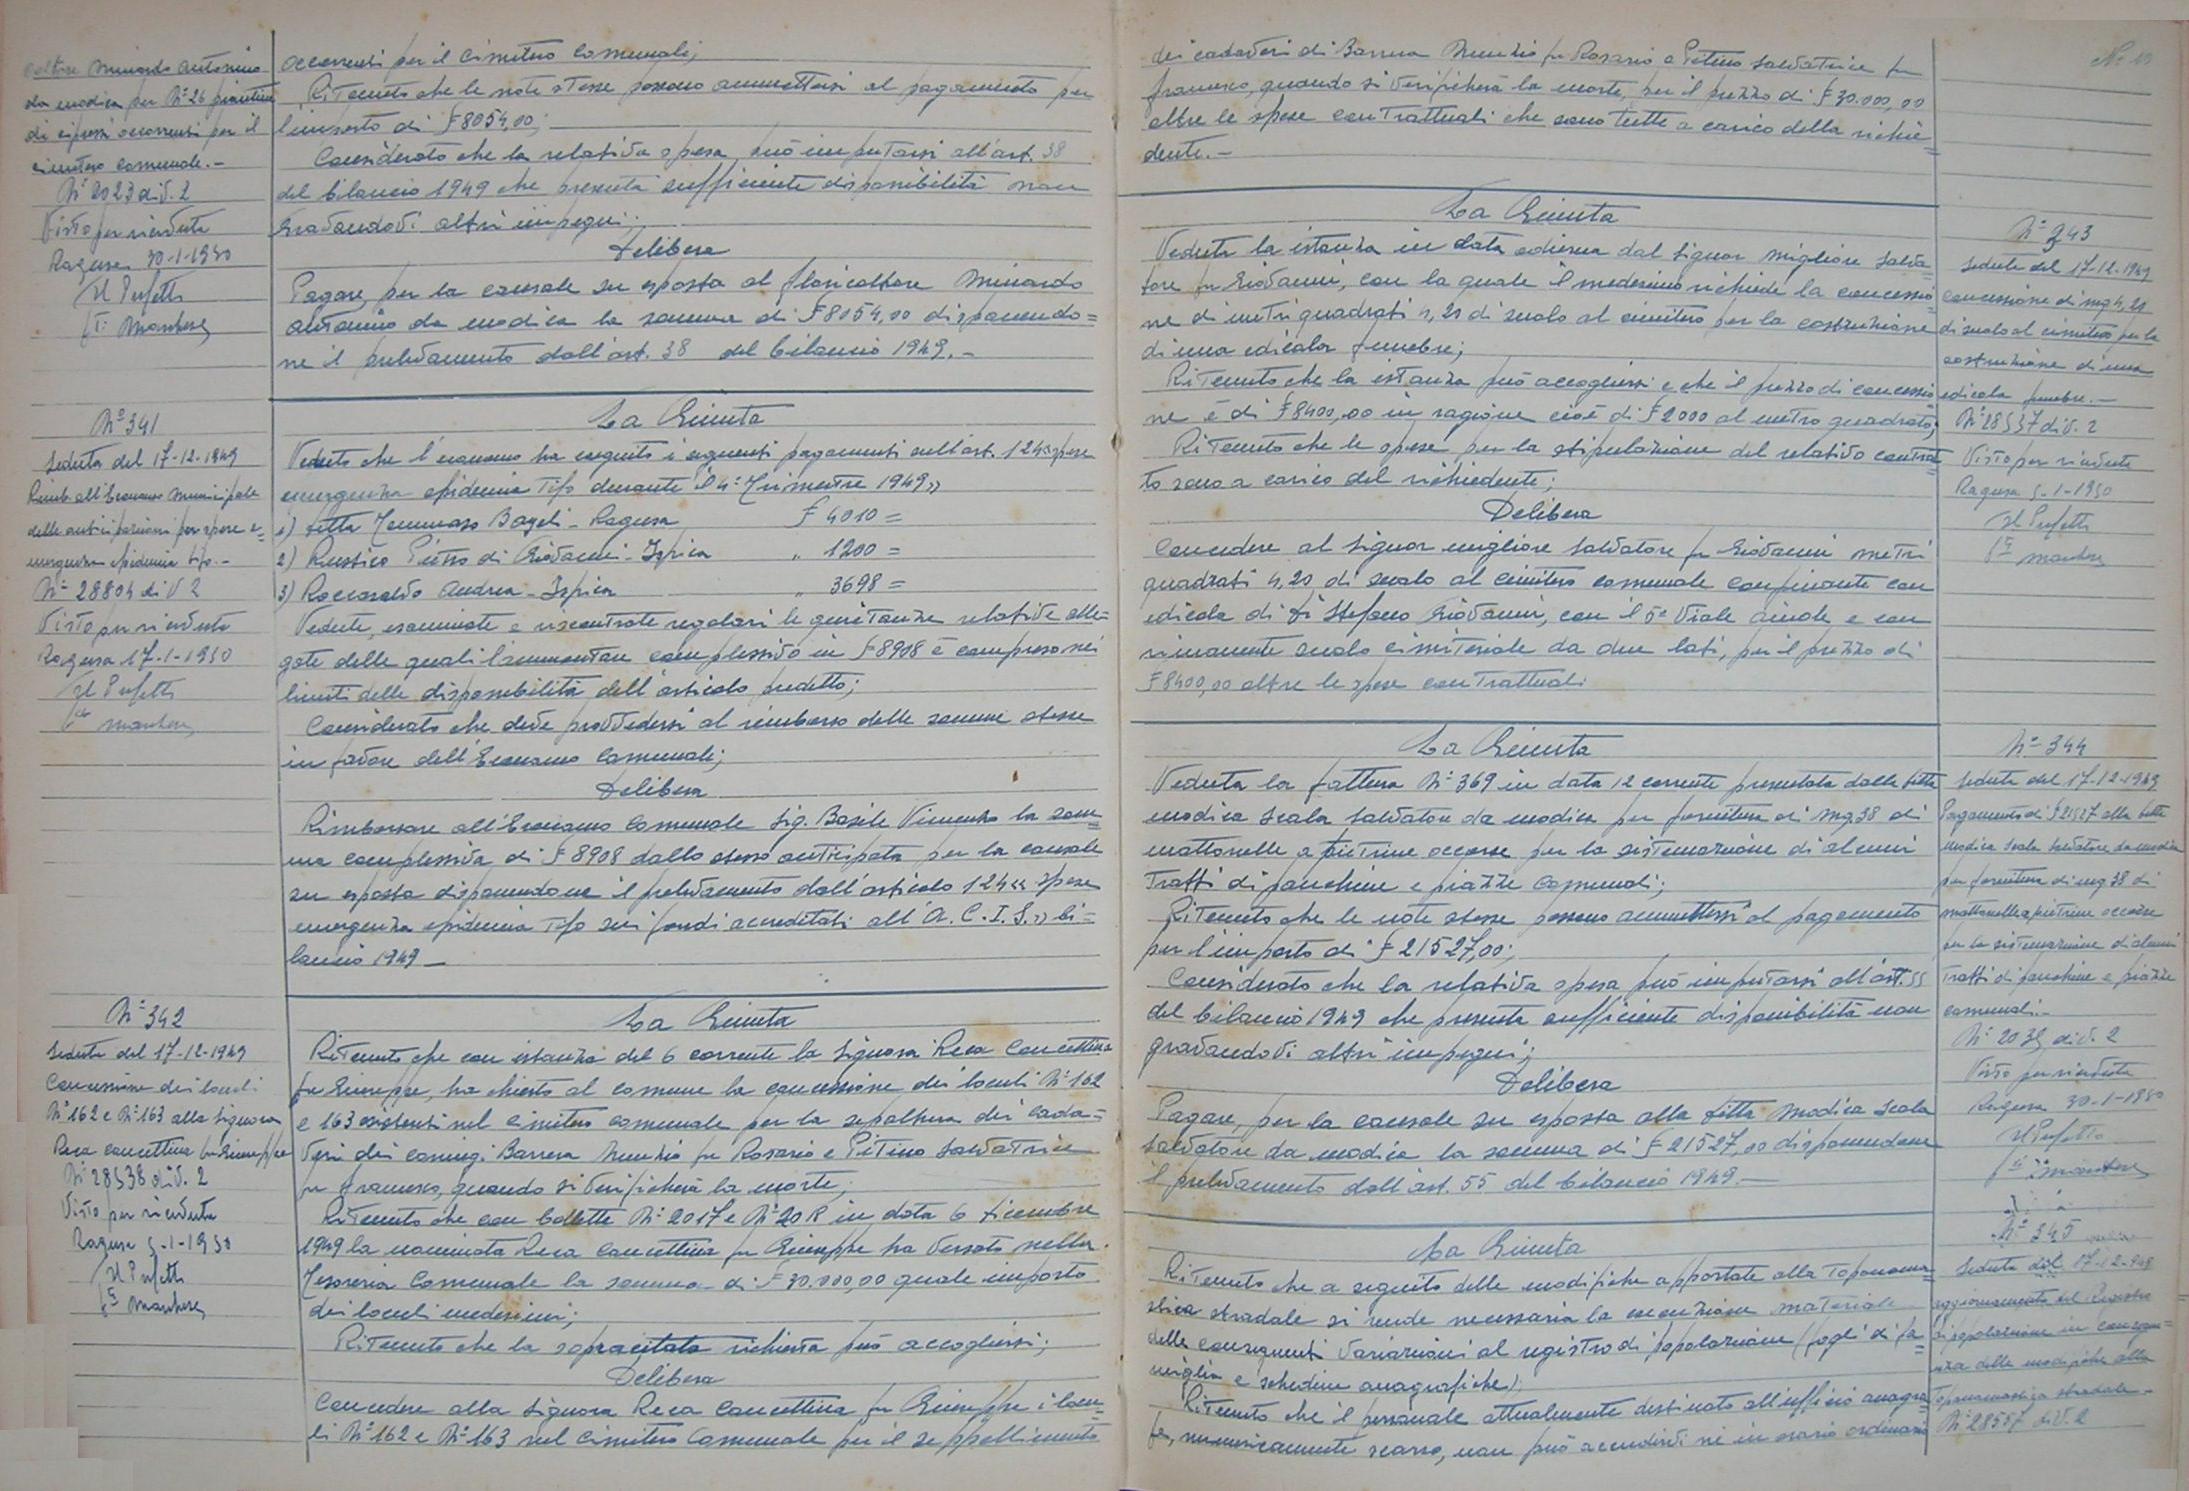 coltore Minardo Antonino
da Modica per Nº 26 piantine
di cipressi occorrenti per il
cimitero comunale.-
Nº 2023 div. 2
Visto per ricevuta
Ragusa 30-1-1950
Il Prefetto
occorrenti per il Cimitero Comunale;
Ritenuto che le note stesse possono ammettersi al pagamento per
l'importo di £ 8054,00;
Considerato che la relativa spesa può imputarsi all'art. 38
del bilancio 1949 che presenta sufficiente disponibilità non
gravandovi altri impegni;
Delibera
Pagare, per la causale su esposta al floricoltore Minardo
Antonino da Modica la somma di £ 8054,00 disponendo=
ne il prelevamento dall'art. 38 del bilancio 1949.-
Nº 341
Seduta del 17-12-1949
Rimb. all'Economo Municipale
delle anticipazioni per spese e=
mergenza epidemia tifo.-
Nº 28804 div 2
Visto per ricevuta
Ragusa 17-1-1950
Il Prefetto
La Giunta
Veduto che l'economo ha eseguito i seguenti pagamenti sull'art. 124 «spese
emergenza epidemia Tifo durante il 4º Trimestre 1949»
1) Ditta Tommaso Bageli - Ragusa £ 4010 =
2) Rustico Pietro di Giovanni - Ispica " 1200 =
3) Roccasalvo Andrea - Ispica " 3698 =
Vedute, esaminate e riscontrate regolari le quietanze relative alle=
gate delle quali l'ammontare complessivo in £ 8908 è compreso nei
limiti delle disponibilità dell'articolo predetto;
Considerato che deve provvedersi al rimborso delle somme stesse
in favore dell'Economo Comunale;
Delibera
Rimborsare all'Economo Comunale Sig. Basile Vincenzo la som=
ma complessiva di £ 8908 dallo stesso anticipata per la causale
su esposta disponendone il prelevamento dall'articolo 124 «Spese
emergenza epidemia Tifo sui fondi accreditati all'A.C.I.S.» bi=
lancio 1949 -
Nº 342
Seduta del 17-12-1949
Concessione dei loculi
Nº 162 e Nº 163 alla Signora
Reca Concettina fu Giuseppe
Nº 28538 div. 2
Visto per ricevuta
Ragusa 5-1-1950
Il Prefetto
La Giunta
Ritenuto che con istanza del 6 corrente la Signora Reca Concettina
fu Giuseppe, ha chiesto al comune la concessione dei loculi Nº 162
e 163 esistenti nel Cimitero Comunale per la sepoltura dei cada=
veri dei coniugi Barrera Nunzio fu Rosario e Pitino Salvatrice
fu Francesco, quando si verificherà la morte;
Ritenuto che con bollette Nº 2017 e Nº 2018 in data 6 Dicembre
1949 la nominata Reca Concettina fu Giuseppe ha versato nella
Tesoreria Comunale la somma di £ 30.000,00 quale importo
dei loculi medesimi;
Ritenuto che la sopracitata richiesta può accogliersi;
Delibera
Concedere alla Signora Reca Concettina fu Giuseppe i locu=
li Nº 162 e Nº 163 nel Cimitero Comunale per il seppellimento
dei cadaveri di Barrera Nunzio fu Rosario e Pitino Salvatrice fu
Francesco, quando si verificherà la morte, per il prezzo di £ 30.000,00
oltre le spese contrattuali che sono tutte a carico della richie=
dente.-
La Giunta
Veduta la istanza in data odierna dal Signor Migliore Salva=
tore fu Giovanni, con la quale il medesimo richiede la concessio=
ne di metri quadrati 4,20 di suolo al cimitero per la costruzione
di una edicola funebre;
Ritenuto che la istanza può accogliersi e che il prezzo di concessio=
ne è di £ 8400,00 in ragione cioè di £ 2000 al metro quadrato;
Ritenuto che le spese per la stipulazione del relativo contrat=
to sono a carico del richiedente;
Delibera
Concedere al Signor Migliore Salvatore fu Giovanni metri
quadrati 4,20 di suolo al cimitero comunale confinante con
edicola di Di Stefano Giovanni, con il 5º Viale aiuole e con
rimanente suolo cimiteriale da due lati, per il prezzo di
£ 8400,00 oltre le spese contrattuali.
Nº 343
Seduta del 17-12-1949
concessione di mq 4,20
di suolo al cimitero per la
costruzione di una
edicola funebre.-
Nº 28537 div. 2
Visto per ricevuta
Ragusa 5-1-1950
Il Prefetto
La Giunta
Veduta la fattura Nº 369 in data 12 corrente presentata dalla Ditta
Modica Scala Salvatore da Modica per fornitura di mq. 38 di
mattonelle a pietrine occorse per la sistemazione di alcuni
Tratti di panchine e piazze Comunali;
Ritenuto che le note stesse possono ammettersi al pagamento
per l'importo di £ 21527,00;
Considerato che la relativa spesa può imputarsi all'art. 55
del bilancio 1949 che presenta sufficiente disponibilità non
gravandovi altri impegni;
Delibera
Pagare, per la causale su esposta alla Ditta Modica Scala
Salvatore da Modica la somma di £ 21527,00 disponendone
il prelevamento dall'art. 55 del bilancio 1949.-
Nº 344
Seduta del 17-12-1949
Pagamento di £ 21527 alla Ditta
Modica Scala Salvatore da Modica
per fornitura di mq 38 di
mattonelle a pietrine occorse
per la sistemazione di alcuni
Tratti di panchine e piazze
comunali.-
Nº 2039 div. 2
Visto per ricevuta
Ragusa 30-1-1950
Il Prefetto
La Giunta
Ritenuto che a seguito delle modifiche apportate alla Toponoma=
stica stradale si rende necessaria la esecuzione materiale
delle conseguenti variazioni al registro di popolazione (fogli di fa=
miglia e schedine anagrafiche);
Ritenuto che il personale attualmente destinato all'ufficio anagra=
fe, numericamente scarso, non può accudirvi nè in orario ordinario
Nº 345
Seduta del 17-12-949
aggiornamento del Registro
di popolazione in consegue=
nza delle modifiche alla
Toponomastica stradale -
Nº 28557 div. 2